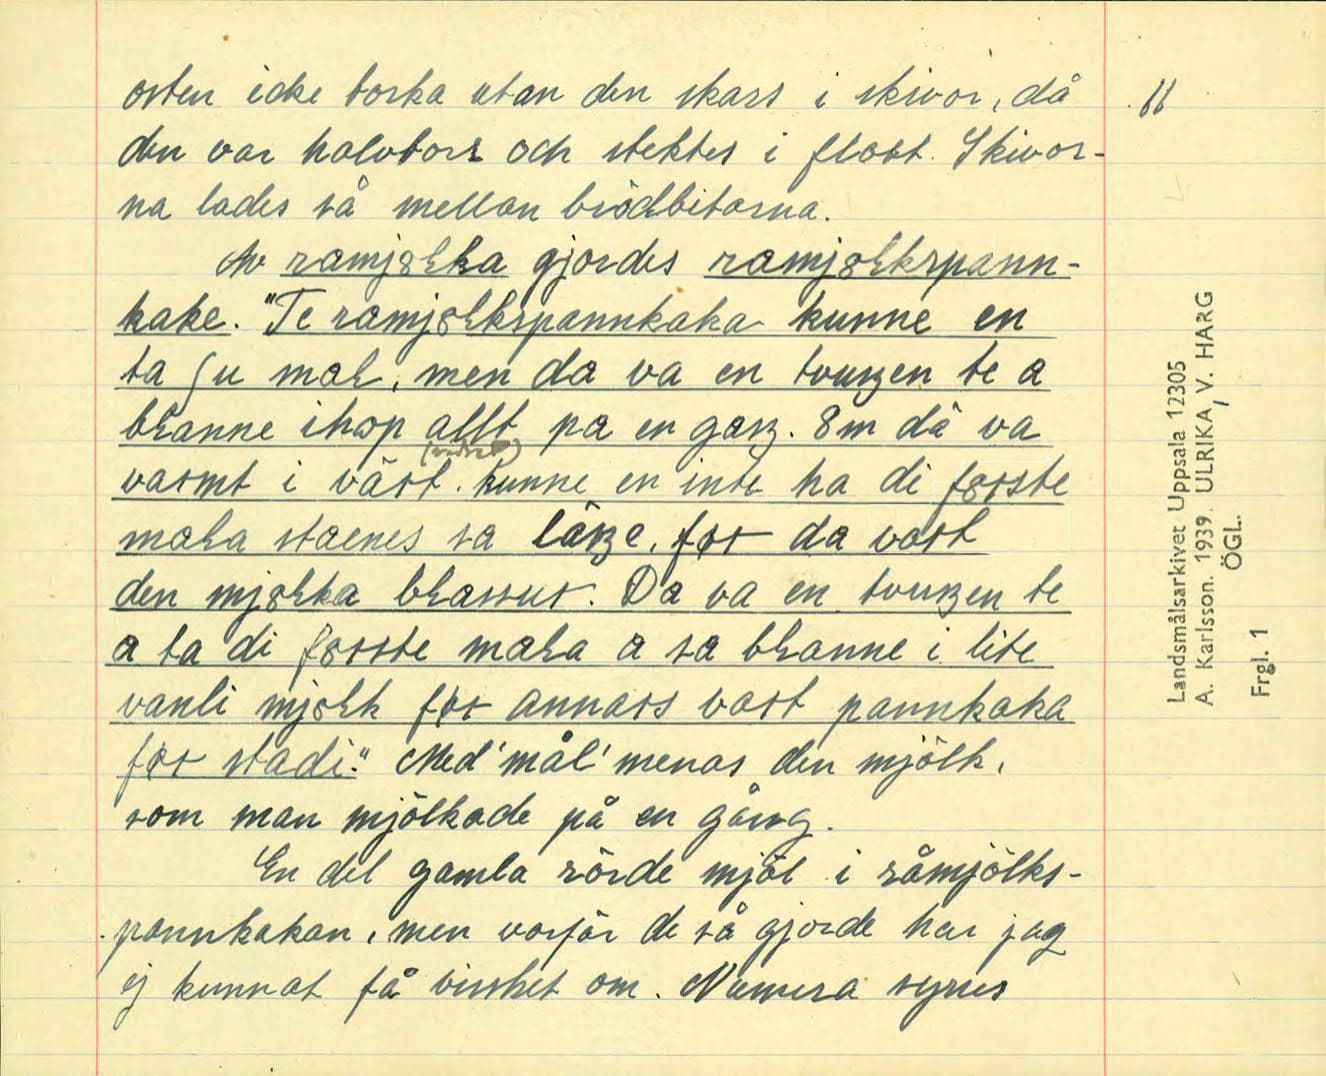 osten icke torka utan den skars i skivor, då
den var halvtorr och stektes i flott. Skivor-
na lades så mellan brödbitarna.
Av ramjɞɬka gjordes ramjɞɬkspann-
kake. "Te ramjɞɬkspannkaka kunne en
ta ʃu maɬ, men da va en tvuŋen te a
bɬanne ihop allt pa en gaŋ. 8m dä va
varmt i väst. kunne en inte ha di fɞrste
maɬa staenes sa läŋe, fɵr da vart
den mjɞɬka bɬassur. Da va en tvuŋen te
a ta di fɞrste maɬa a sa bɬanne i lite
vanli mjɞɬk fɵr annars vart pannkaka
fɵr stadi." Med 'mål' menas den mjölk,
som man mjölkade på en gång.
En del gamla rörde mjöl i råmjölks-
pannkakan, men varför de så gjorde har jag
ej kunnat få visshet om. Numera synes
11
Landsmålsarkivet Uppsala 12305
A. Karlsson. 1939. ULRIKA, V. HARG
ÖGL.
Frgl. 1